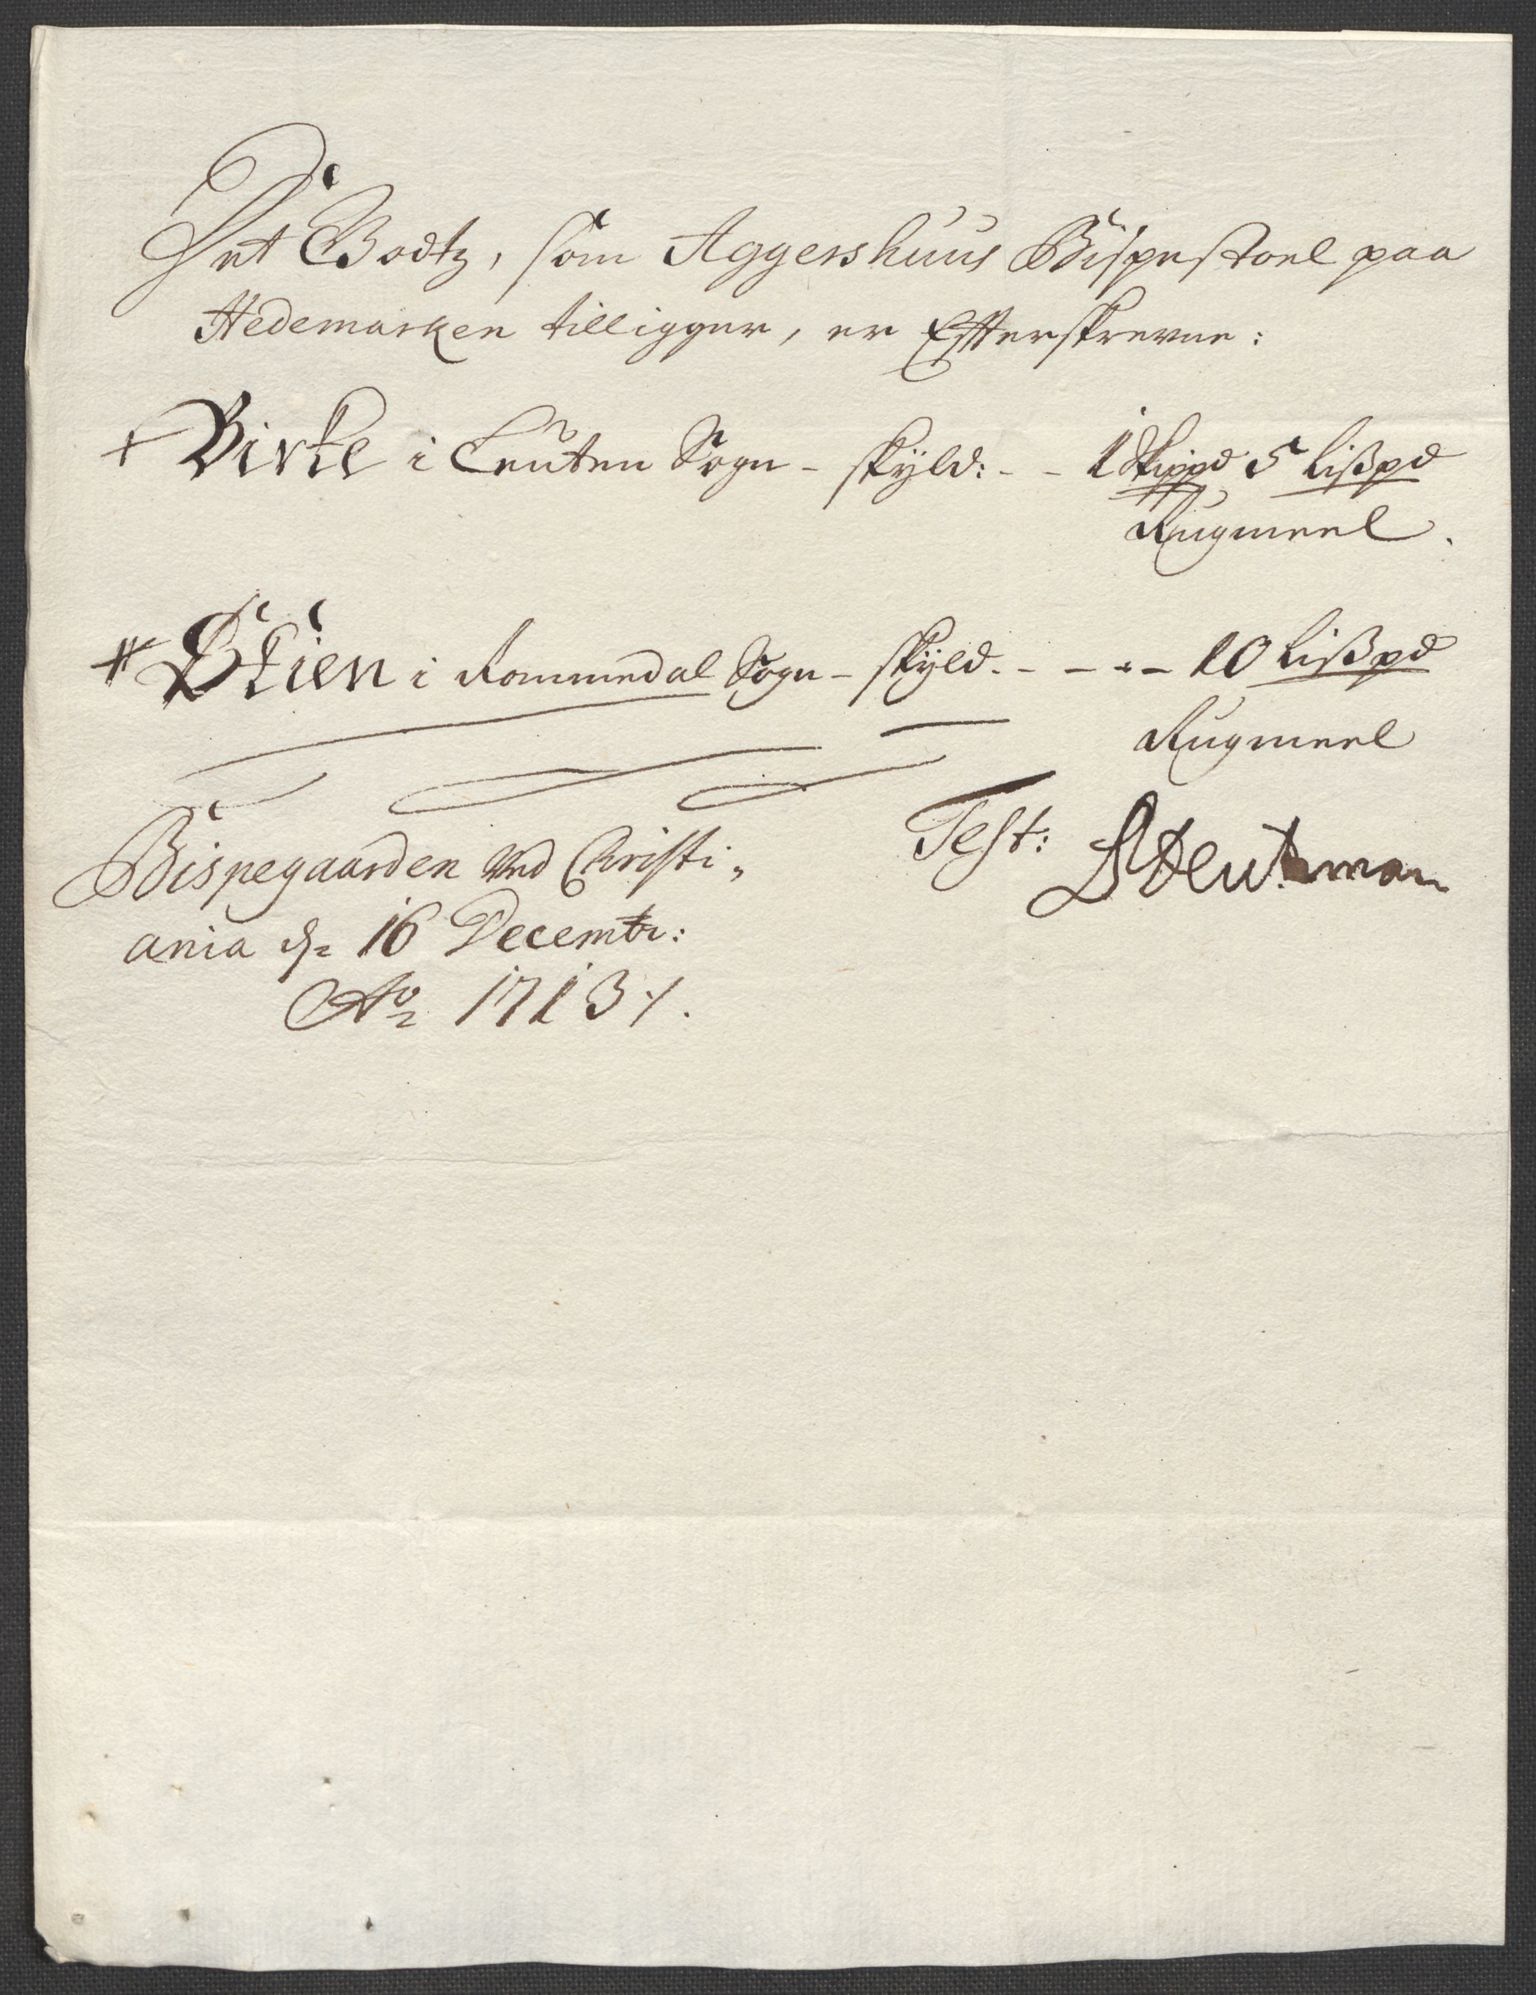 Det Godtz, som Aggershuus Bispestoel paa
Hedemarken tilligger, er Effterskrevne:
+ Birke i Leuten Sogn - skyld: - - 1 Skippd 5 Lißpd
Rugmeel.
# Stien i Rommedal Sogn - skyld. - - - - 10 Lißpd
Rugmeel
Bispegaarden ved Christi-
ania d. 16 Decembr:
Ao 1713 /.
Test: